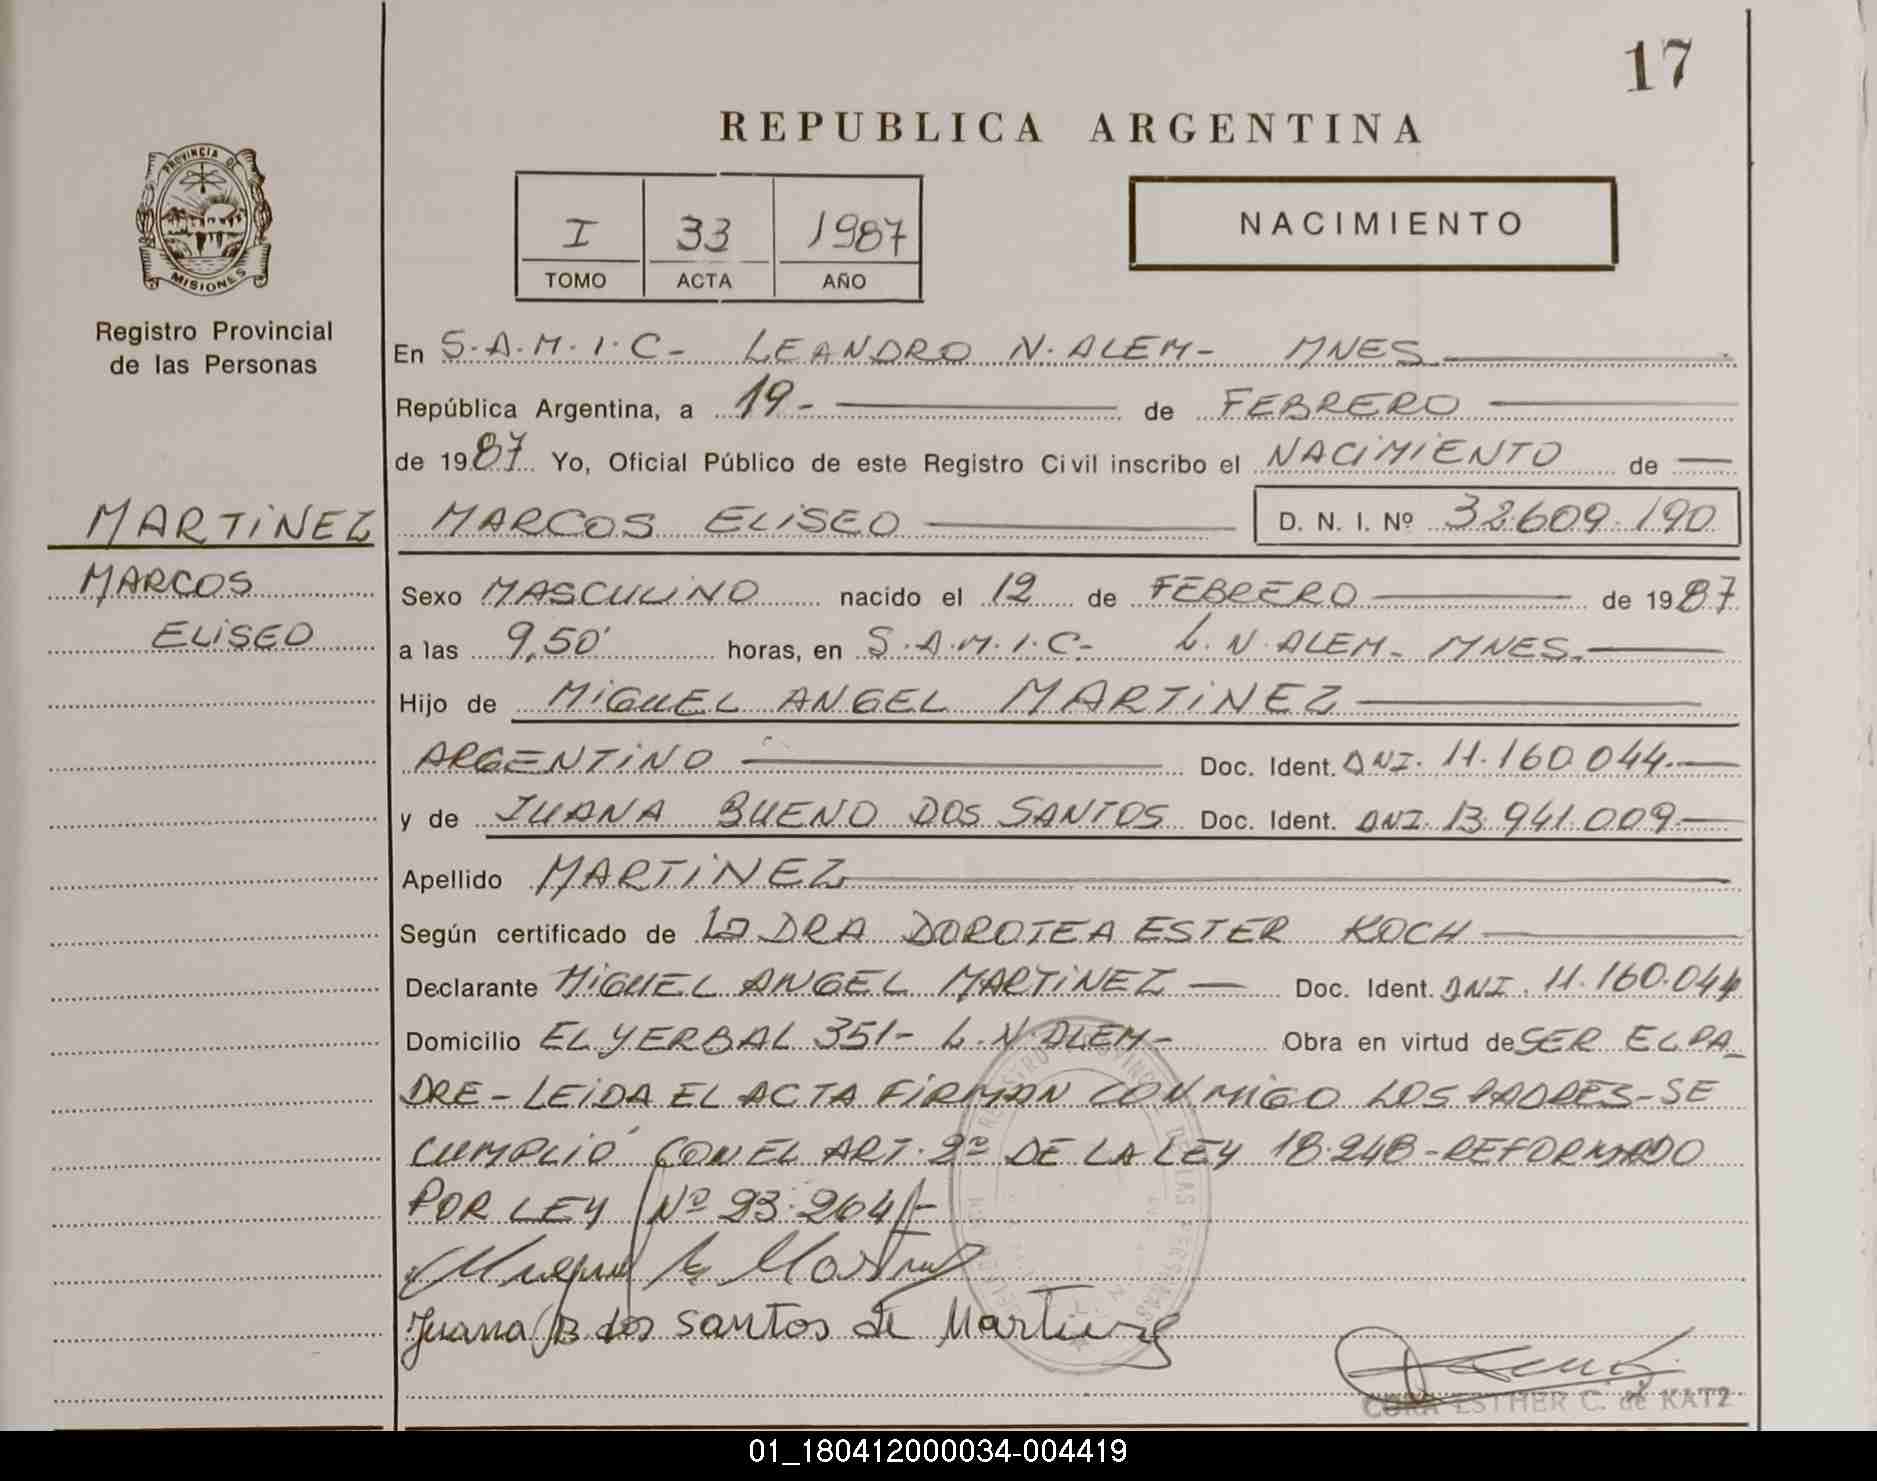 17
REPUBLICA ARGENTINA
PROVINCIA DE
MISIONES
Registro Provincial
de las Personas
I 33 1987
TOMO ACTA AÑO
NACIMIENTO
En S.A.M.I.C- LEANDRO N. ALEM- MNES
República Argentina, a 19- de FEBRERO
de 1987 Yo, Oficial Público de este Registro Civil inscribo el NACIMIENTO de
MARTINEZ MARCOS ELISEO D. N. I. Nº 32.609.190
MARCOS
ELISEO
Sexo MASCULINO nacido el 12 de FEBRERO de 1987
a las 9,50' horas, en S.A.M.I.C- L. N. ALEM- MNES.
Hijo de MIGUEL ANGEL MARTINEZ
ARGENTINO Doc. Ident. DNI. 11.160.044.
y de JUANA BUENO DOS SANTOS Doc. Ident. DNI. 13.941.009.
Apellido MARTINEZ
Según certificado de La DRA DOROTEA ESTER KOCH
Declarante MIGUEL ANGEL MARTINEZ Doc. Ident. DNI. 11.160.044
Domicilio EL YERBAL 351- L. N. ALEM- Obra en virtud de SER EL PA_
DRE- LEIDA EL ACTA FIRMAN CONMIGO LOS PADRES-SE
CUMPLIÓ CON EL ART. 2º DE LA LEY 18.248-REFORMADO
POR LEY Nº 23.264/-
Juana B dos Santos de Martinez
CORA ESTHER C. de KATZ
01_180412000034-004419